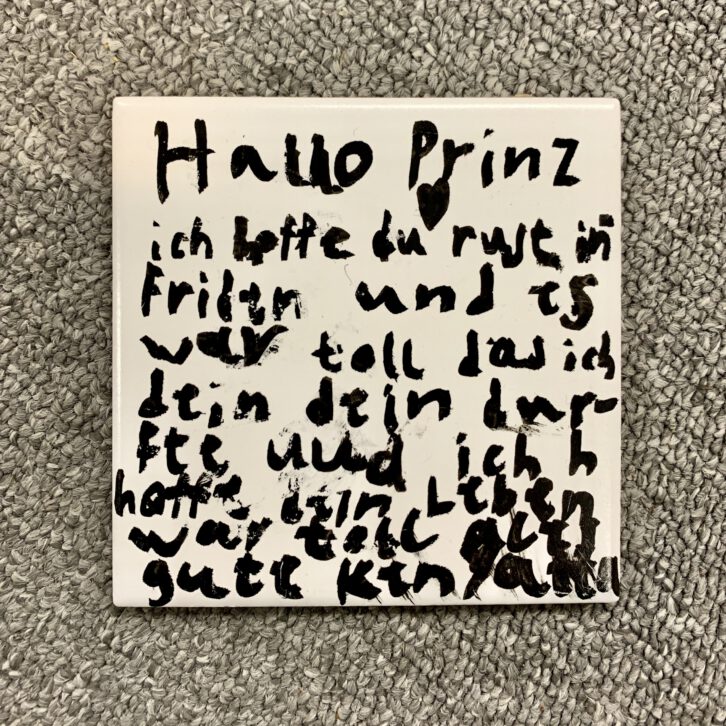 Hallo Prinz
ich hoffe du rust in
Friden und es
war toll das ich
dein dein dur-
fte und ich h
hoffe dein Leben
war toll
gute